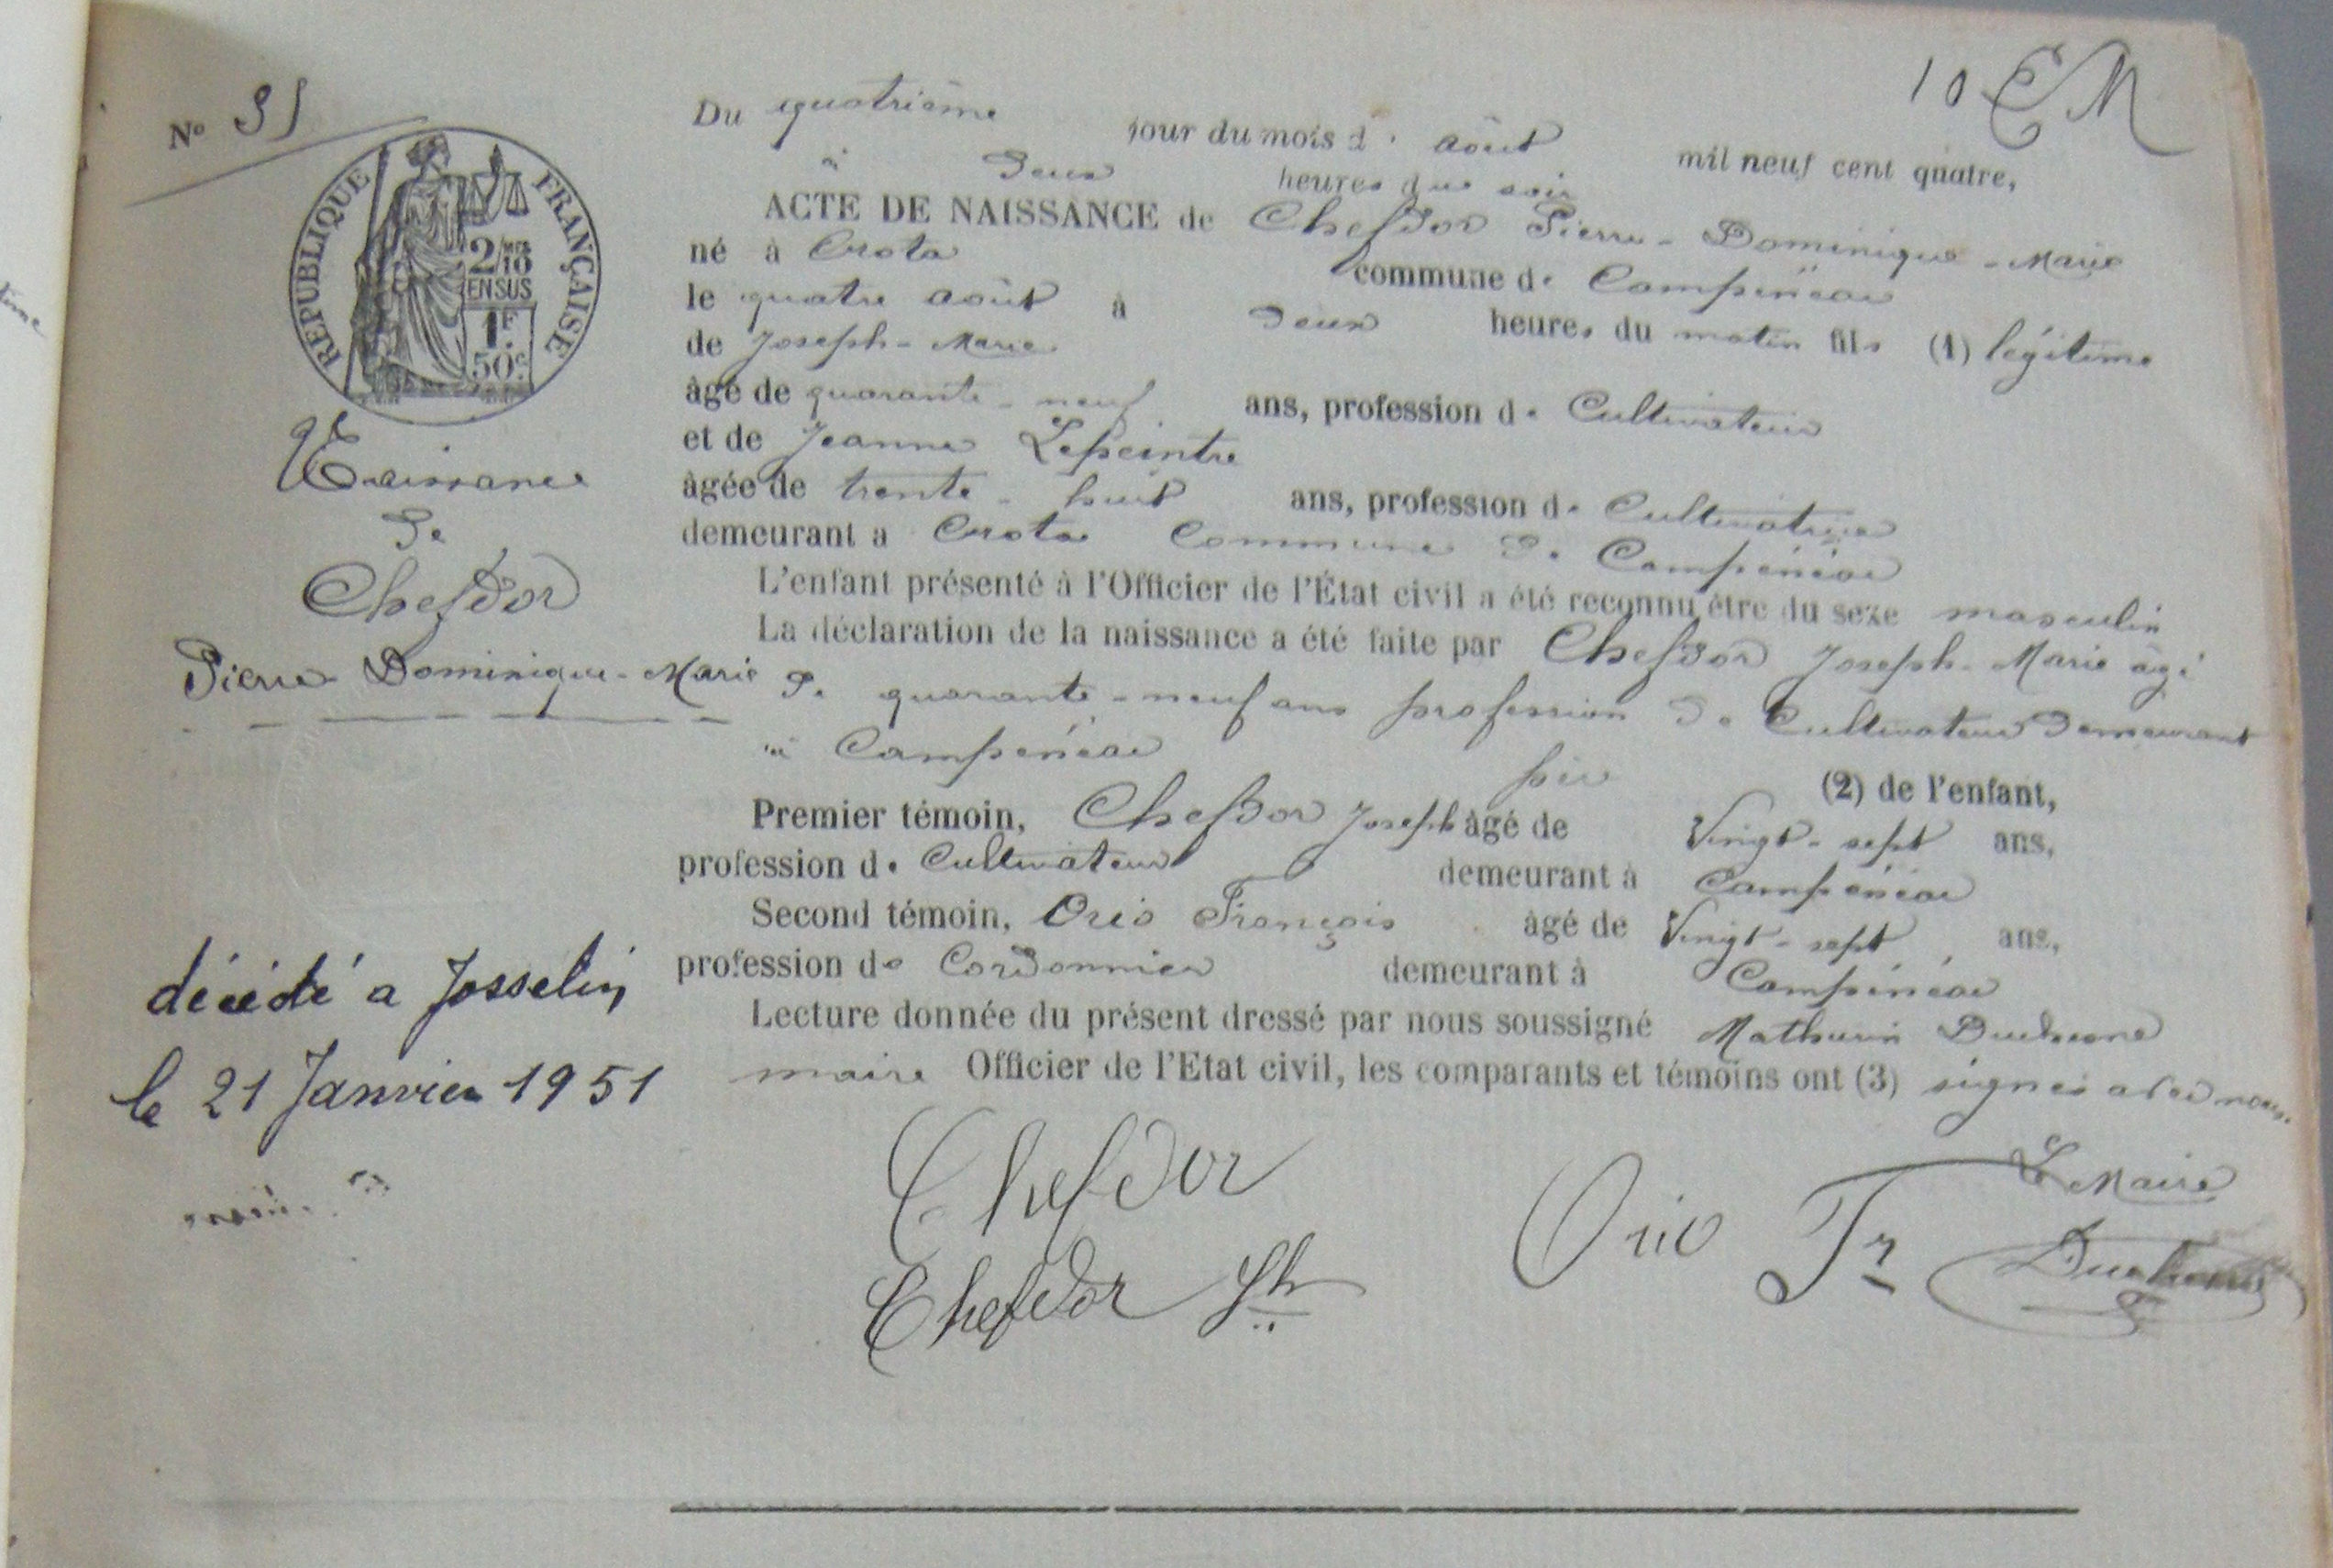 10 EM
Nº 31
RÉPUBLIQUE FRANÇAISE
2/10 EN SUS
1F. 50c.
Naissance
de
Chefdor
Pierre Dominique-Marie
décédé a Josselin
le 21 Janvier 1951
Du quatrième jour du mois d' août mil neuf cent quatre,
à Deux heures du soir
ACTE DE NAISSANCE de Chefdor Pierre-Dominique-Marie
né à Crota commune de Campénéac
le quatre août à deux heures du matin fils (1) légitime
de Joseph-Marie
âgé de quarante-neuf ans, profession de Cultivateur
et de Jeanne Lepeintre
âgée de trente-huit ans, profession de Cultivatrice
demeurant a Crota Commune de Campénéac
L'enfant présenté à l'Officier de l'État civil a été reconnu être du sexe masculin
La déclaration de la naissance a été faite par Chefdor Joseph-Marie âgé
de quarante-neuf ans profession de Cultivateur demeurant
à Campénéac père (2) de l'enfant,
Premier témoin, Chefdor Joseph âgé de Vingt-sept ans,
profession de Cultivateur demeurant à Campénéac
Second témoin, Orio François âgé de Vingt-sept ans,
profession de Cordonnier demeurant à Campénéac
Lecture donnée du présent dressé par nous soussigné Mathurin Duchesne
maire Officier de l'Etat civil, les comparants et témoins ont (3) signés avec nous.
Chefdor
Chefdor Jh
Orio Fr
Le Maire
Duchesne